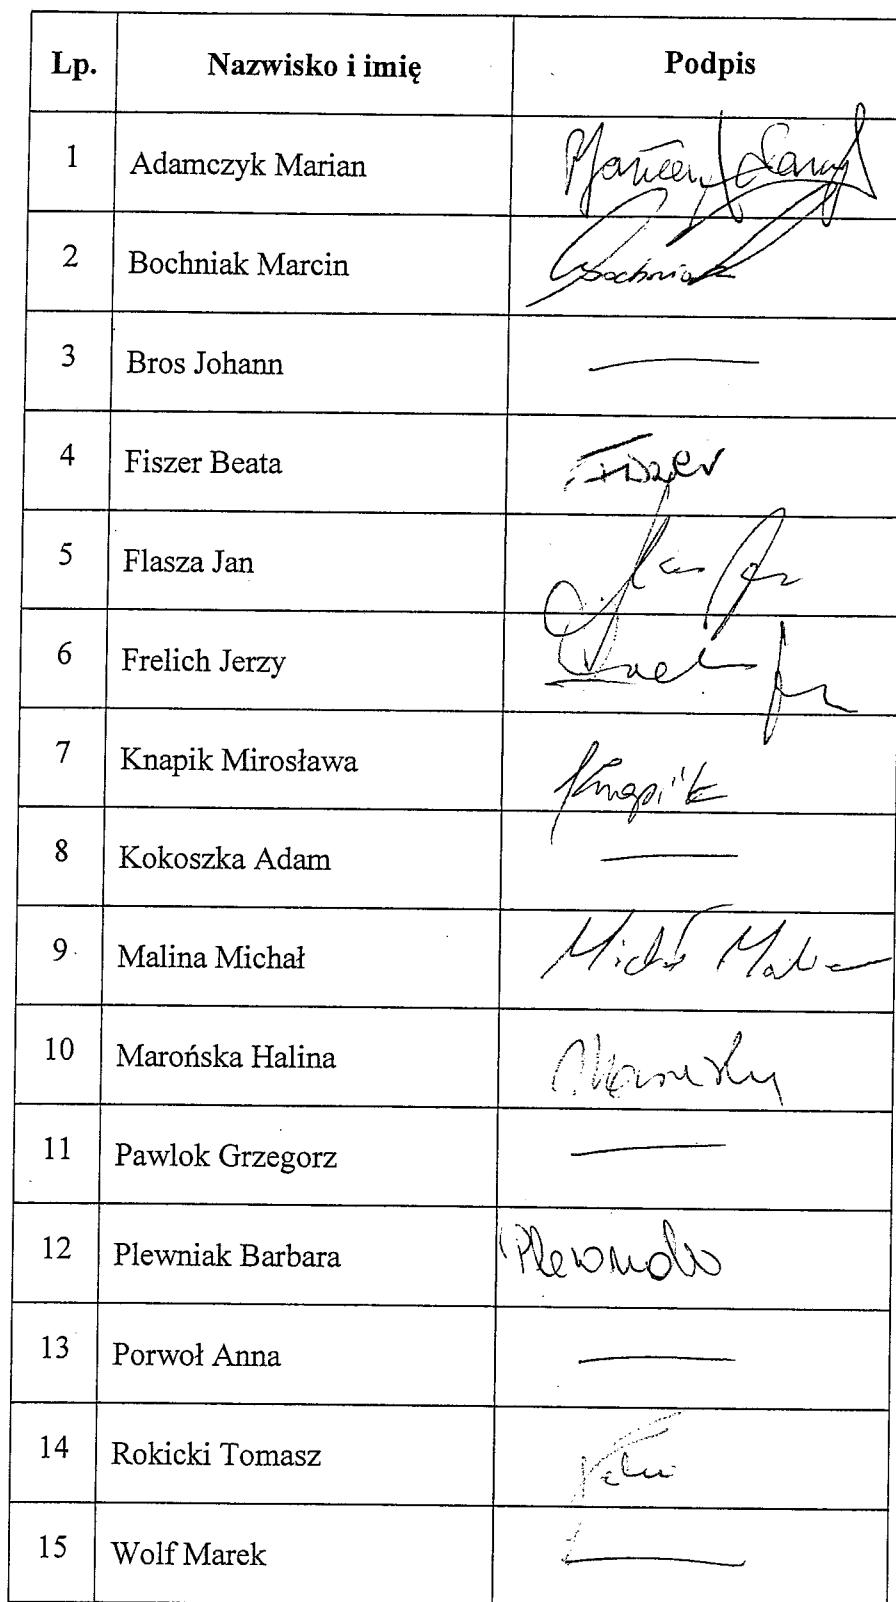 Lp. Nazwisko i imię Podpis
1 Adamczyk Marian
2 Bochniak Marcin Bochniak
3 Bros Johann —
4 Fiszer Beata Fiszer
5 Flasza Jan
6 Frelich Jerzy
7 Knapik Mirosława Knapik
8 Kokoszka Adam —
9 Malina Michał Michał Malina
10 Marońska Halina
11 Pawlok Grzegorz —
12 Plewniak Barbara
13 Porwoł Anna —
14 Rokicki Tomasz
15 Wolf Marek —